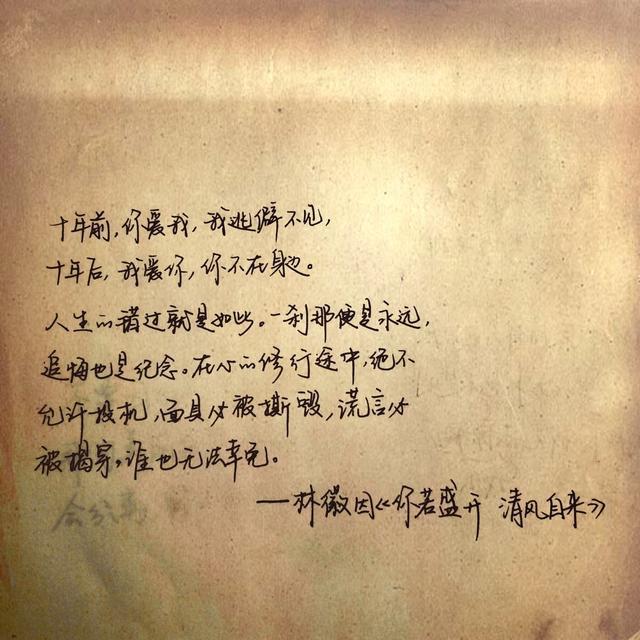 十年前,你爱我,我逃僻不见,
十年后,我爱你,你不在身边。
人生的错过就是如此。一刹那便是永远,
追悔也是纪念。在心的修行途中,绝不
允许投机,面具必被撕毁,谎言必
被揭穿。谁也无法幸免。
——林徽因《你若盛开 清风自来》